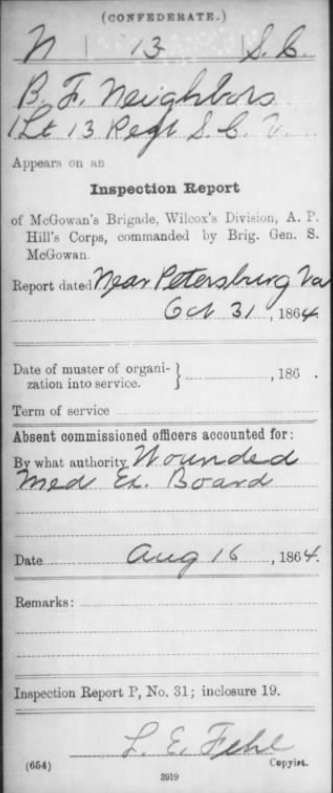 (CONFEDERATE.)
N | 13 | S.C.
B. F. Neighbors
1 Lt 13 Regt S. C. V.
Appears on an
Inspection Report
of McGowan's Brigade, Wilcox's Division, A. P.
Hill's Corps, commanded by Brig. Gen. S.
McGowan.
Report dated Near Petersburg Va
Oct 31, 1864.
Date of muster of organi-
zation into service. } , 186 .
Term of service
Absent commissioned officers accounted for:
By what authority Wounded
Med Ex. Board
Date Aug 16, 1864.
Remarks:
Inspection Report P, No. 31; inclosure 19.
L. E. Fehl
(654) Copyist.
3919